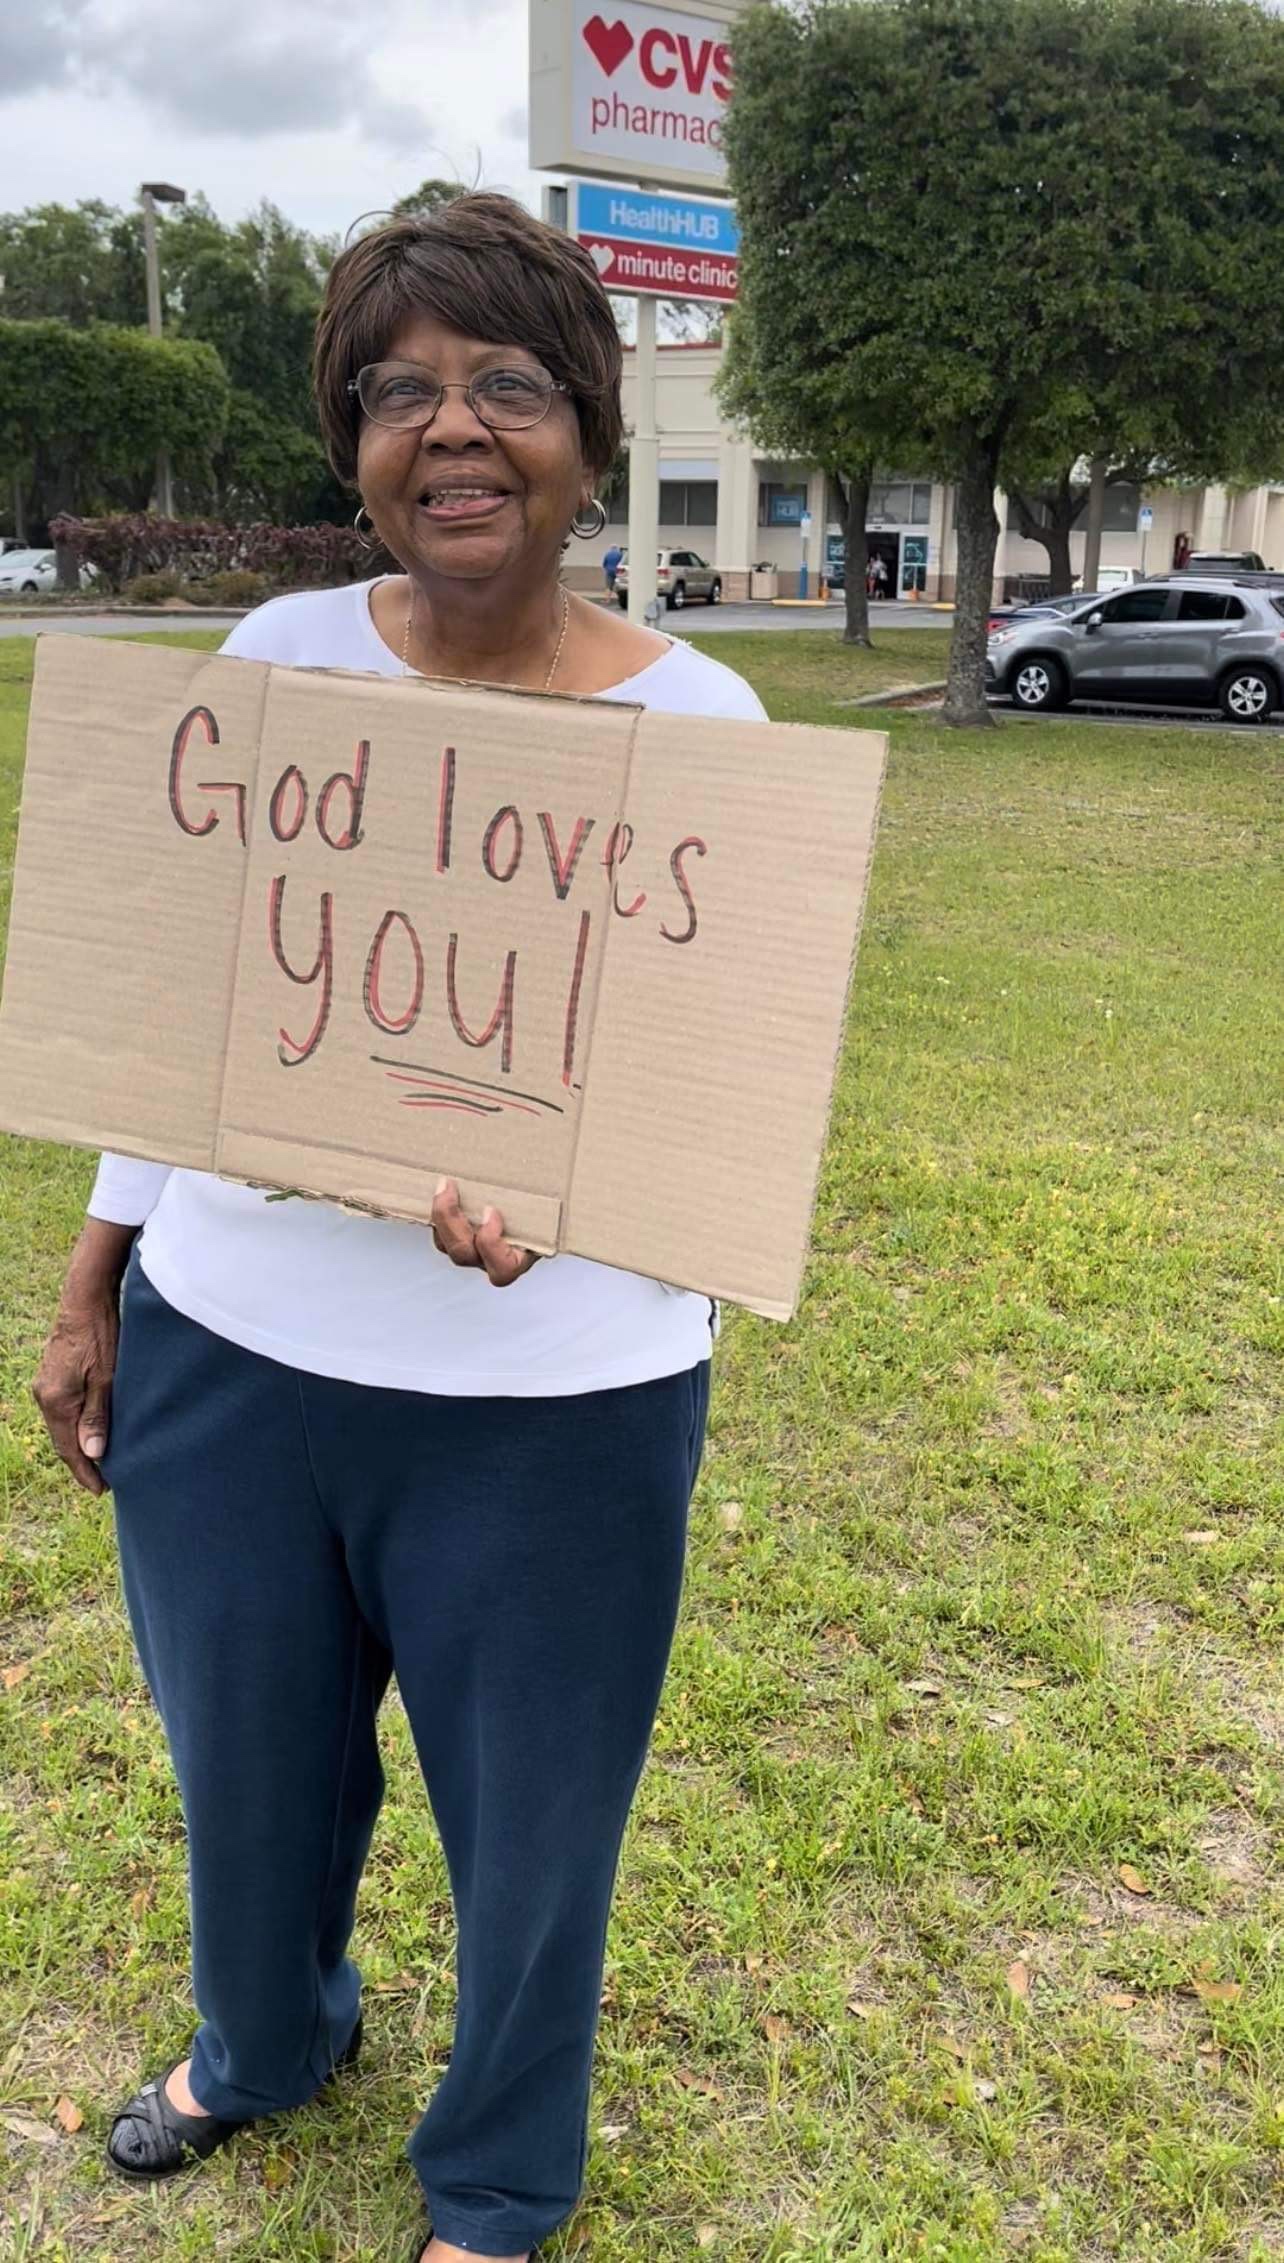 CVS
pharmac
HealthHUB
minute clinic
God loves
you!
HUB